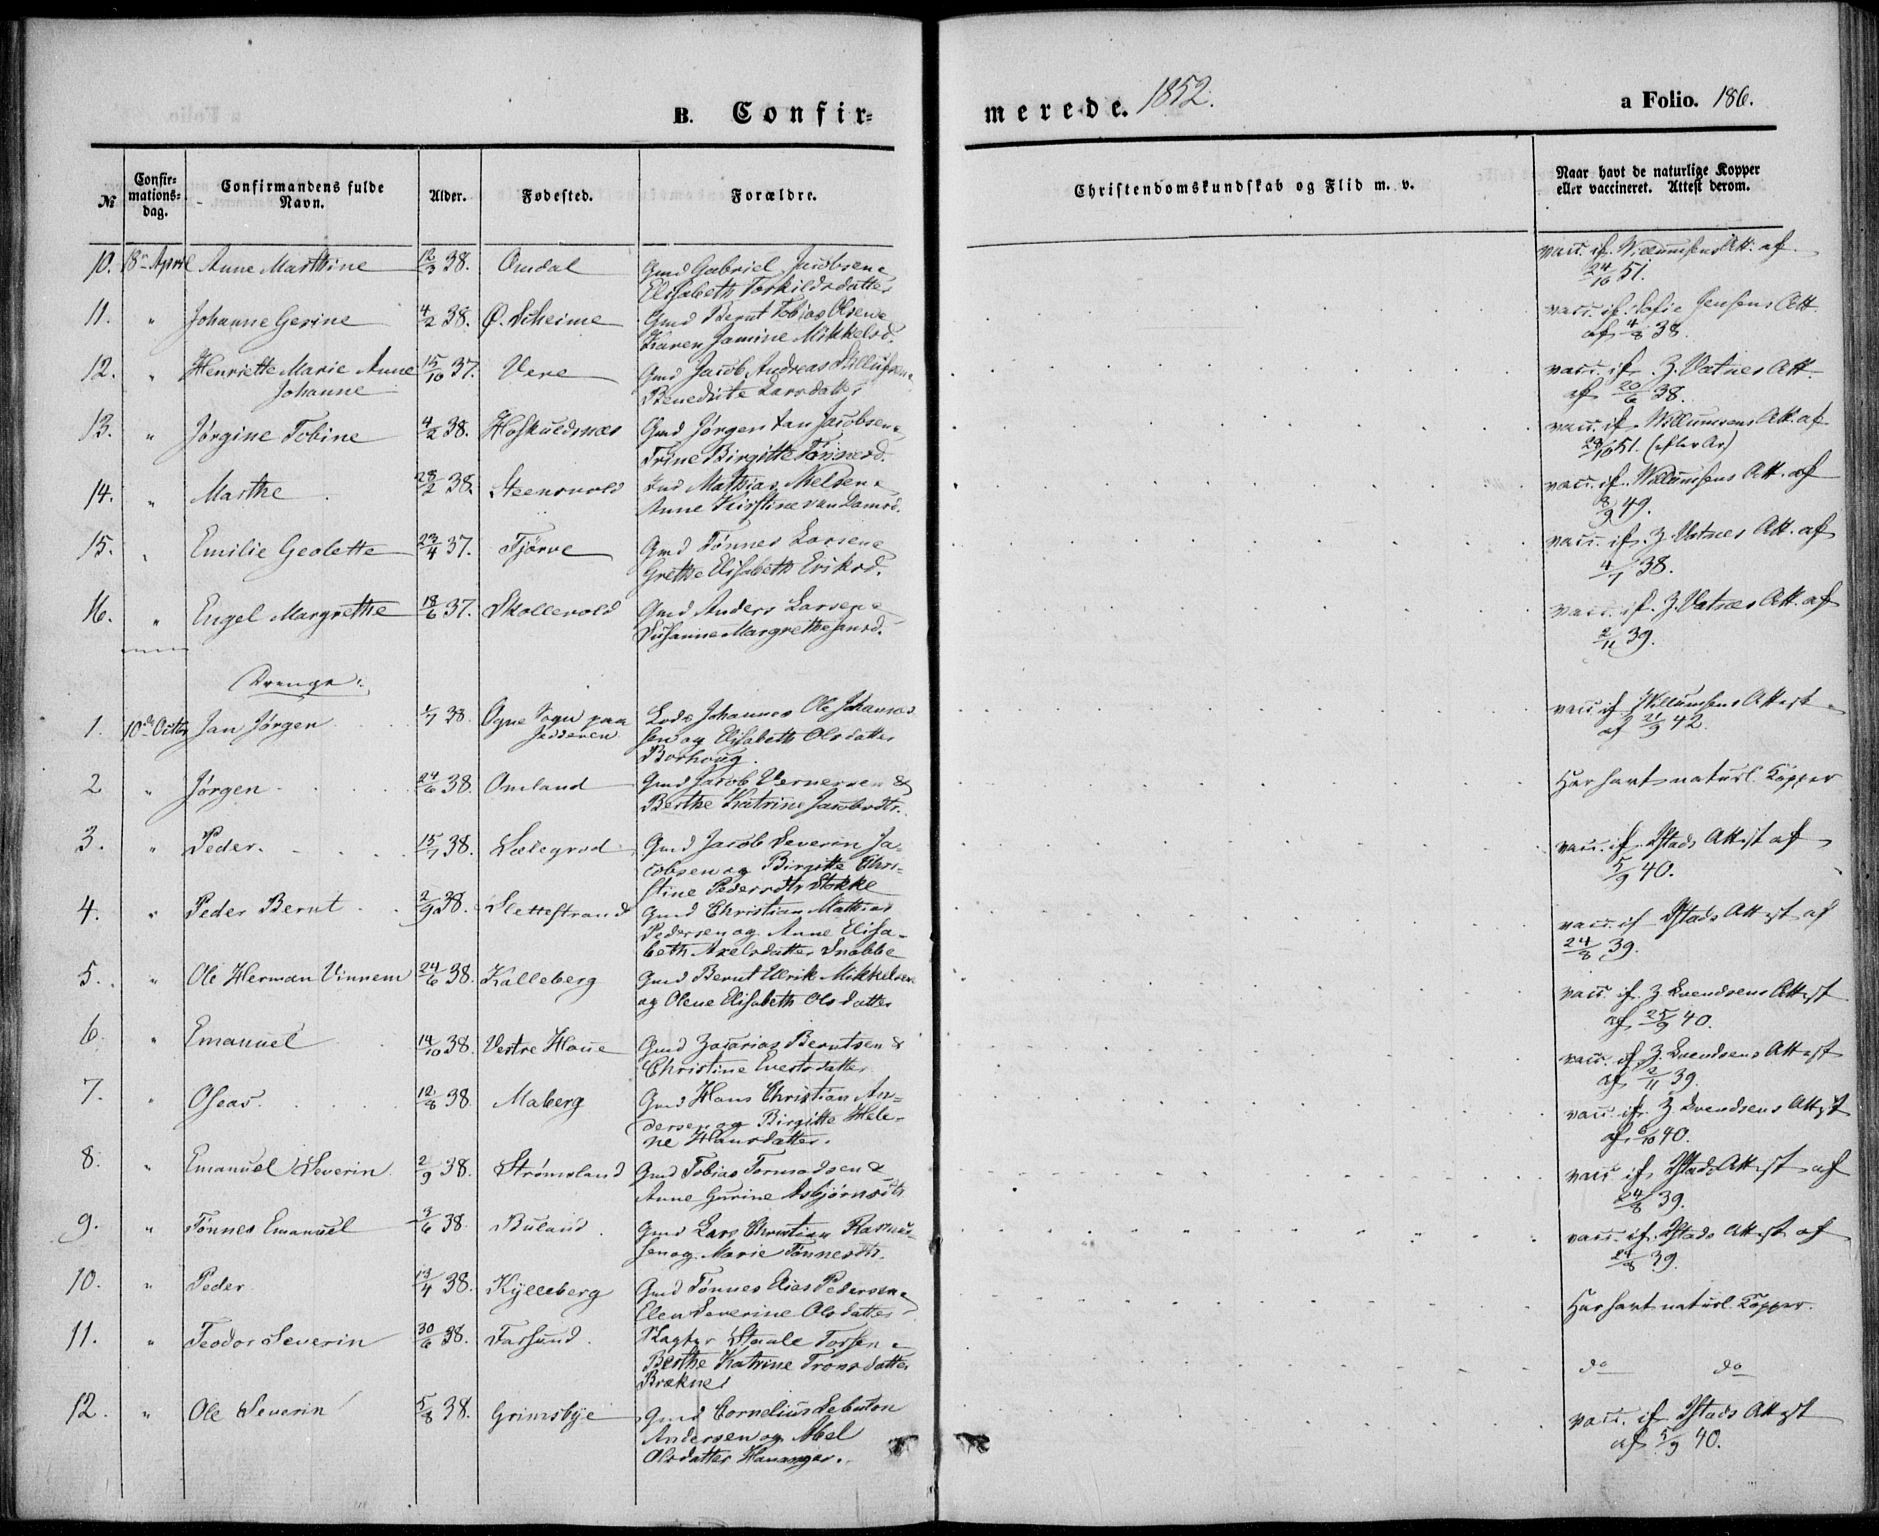 B. Confirmerede. 1852. a Folio. 186.
№ Confirmationsdag. Confirmandens fulde Navn. Alder. Fødested. Forældre. Christendomskundskab og Flid m. v. Naar havt de naturlige Kopper eller vaccineret. Attest derom.
10. 18 April Anne Marthine 12/3 38. Omdal Gmd Gabriel Jacobsen
Elisabeth Torkildsdatter vacc. if. Willumsens Att. af 24/10 51.
11. " Johanne Gesine 4/2 38. Ø. Skeime Gmd Bernt Tobias Olsen
Karen Jamine Mikkelsd. vacc. if. Sofie Jensens Att. af 4/8 38.
12. " Henriette Marie Anne 15/10 37. Vere Gmd Jacob Andreas
Johanne Benedicte Larsdatter vacc. if. Z. Vatnes Att. af 20/6 38.
13. " Jørgine Tobine 4/2 38. Hoskuldsnæs Gmd Jørgen Jan Jacobsen
Trine Birgitte Tønnesd. vacc. if. Willumsens Att. af 28/10 51.
14. " Marthe 28/2 38. Steensvold Mathias Nielsen
Anne Kirstine vacc. if. Willumsens Att. af 8/9 49.
15. " Emilie Geolette 23/4 37. Tjørve Gmd Tønnes Larsen
Grethe Elisabeth Eriksd. vacc. if. Z. Vatnes Att. af 4/7 38.
16. " Engel Margrethe 18/6 37. Skollevold Gmd Anders Larsen
Susanne Margrethe Jansd. vacc. if. Z. Vatnes Att. af 2/11 39.
Drenge:
1. 10de Octbr Jan Jørgen 1/7 38. Ogne Sogn paa Lods Johannes Ole Johannes
Jedderen sen og Elisabeth Olsdatter
Borhoug. vacc. if. Willumsens Attest af 21/9 42.
2 " Jørgen 24/6 38. Omland Gmd Jacob Vernersen &
Berthe Katrine Jacobsdtr. Har havt naturl. Kopper
3. " Peder. 15/7 38. Sælegrod Gmd Jacob Severin Ja-
cobsen og Birgitte Chri-
stine Pedersdtr Stokke vacc. if. Ystads Attest af 5/9 40.
4. " Peder Bernt 2/9 38. Slettestrand Gmd Christian Mathias
Pedersen og Anne Elisa-
beth Axelsdatter Snobbe vacc. if. Ystads Attest af 24/8 39.
5. " Ole Herman Vinnem 24/6 38. Kalleberg Gmd Bernt Ulrik Mikkelsen
og Olene Elisabeth Olsdatter vacc. if. Z. Svendsens Attest af 25/9 40.
6. " Emanuel 14/10 38. Vestre Haue Gmd Zacarias Berntsen &
Christine Evertsdatter vacc. if. Z. Svendsens Attest af 2/11 39.
7. " Oseas. 12/8 38. Maberg Gmd Hans Christian An-
dersen og Birgitte Hele-
ne Hansdatter. vacc. if. Z. Svendsens Attest af 6/10 40.
8. " Emanuel Severin 2/9 38. Strømsland Gmd Tobias Tormodsen &
Anne Gurine Asbjørnsdtr. vacc. if. Ystads Attest af 24/8 39.
9. " Tønnes Emanuel 3/6 38. Buland Gmd Lars Christian Rasmus-
sen og Marie Tønnesdtr. vacc. if. Ystads Attest af 24/8 39.
10. " Peder 13/4 38. Kylleberg Gmd Tønnes Elias Pedersen
Elen Severine Olsdatter Har havt naturl. Kopper.
11. " Teodor Severin 30/6 38. Farsund. Slagter Staale Torsen
Berthe Katrine Tronsdatter
Brækne do do
12. " Ole Severin 5/8 38. Grimsbye Gmd Cornelius
Andersen og Abel
Olsdatter Hananger. vacc. if. Ystads Attest af 5/9 40.